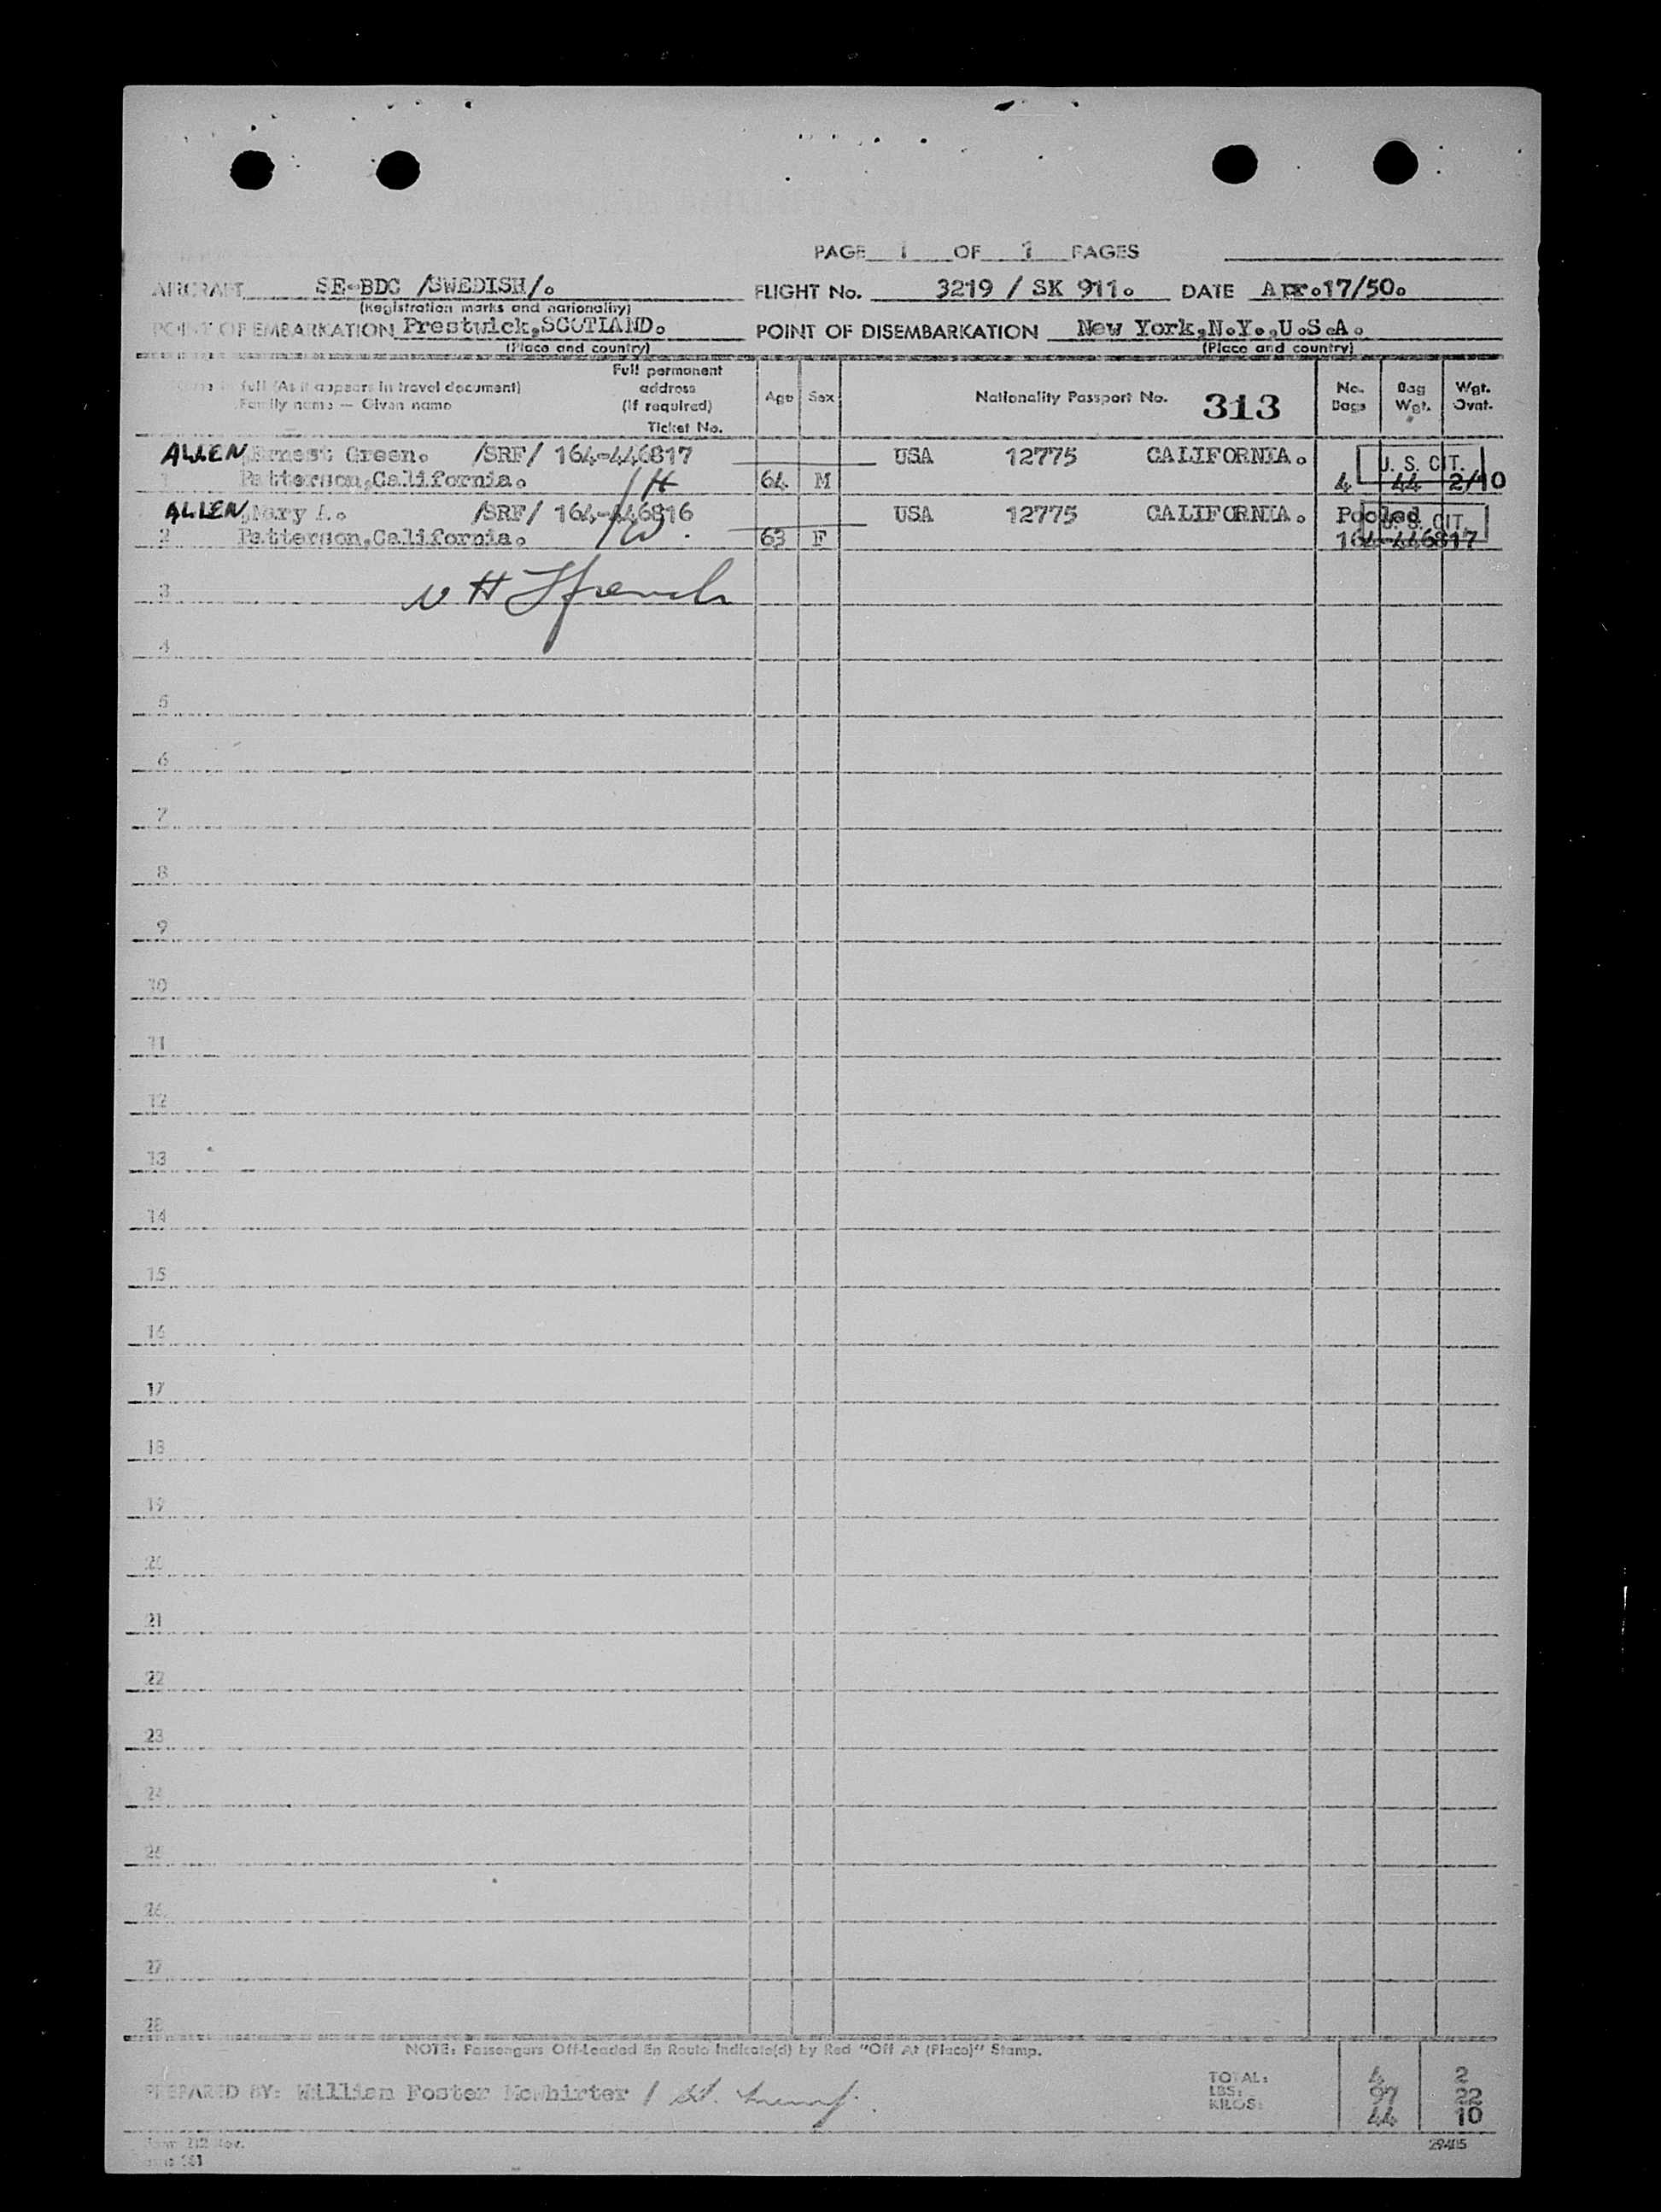 PAGE 1 OF 1 PAGES
AIRCRAFT SE-BDC /SWEDISH/. FLIGHT No. 3219 / SK 911. DATE Apr.17/50.
(Registration marks and nationality)
POINT OF EMBARKATION Prestwick,SCOTLAND. POINT OF DISEMBARKATION New York,N.Y.,U.S.A.
(Place and country) (Place and country)
Full permanent
full (As it appears in travel document) address Age Sex Nationality Passport No. 313 No. Bag Wgt.
Family name — Given name (If required) Bags Wgt. Ovat.
Ticket No.
ALLEN,Ernest Green. /SRF/ 164-446817 USA 12775 CALIFORNIA. U. S. CIT.
1 Patterson,California. /H 64 M 4 44 2/10
ALLEN,Mary A. /SRF/ 164-446816 USA 12775 CALIFORNIA. Pooled U. S. CIT.
2 Patterson,California. /W. 63 F 164-446817
3
4
5
6
7
8
9
10
11
12
13
14
15
16
17
18
19
20
21
22
23
24
25
26
27
28
NOTE: Passengers Off-Loaded En Route Indicate(d) by Red "Off At (Place)" Stamp.
TOTAL: 4 2
PREPARED BY: William Foster McWhirter / LBS: 97 22
KILOS: 44 10
Form 212 Rev. 29405